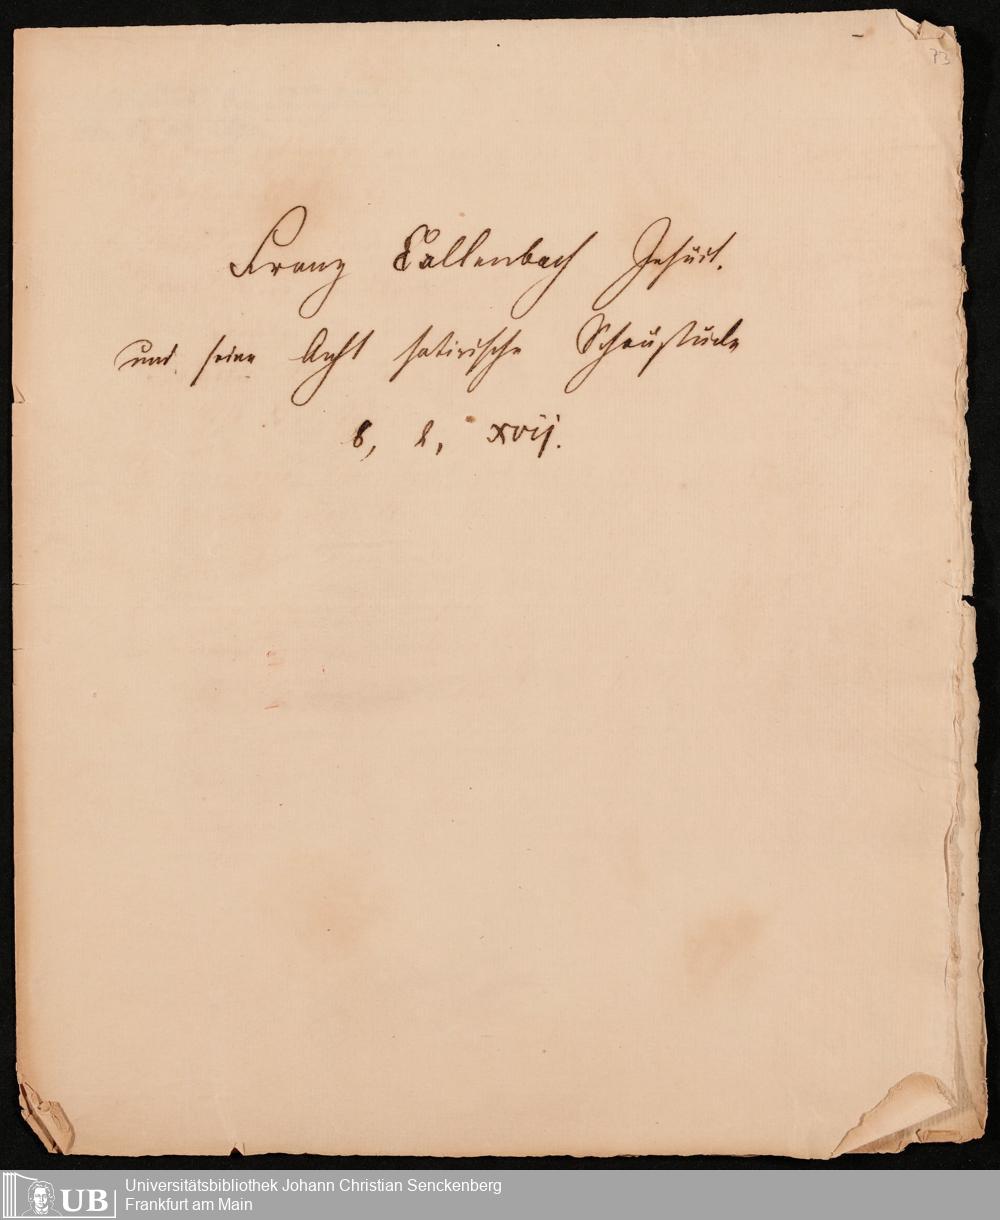 73
Franz Callenbach Jesuit.
und seine Acht satirische Schaustücke
8, 2, xvij.
UB
Universitätsbibliothek Johann Christian Senckenberg
Frankfurt am Main